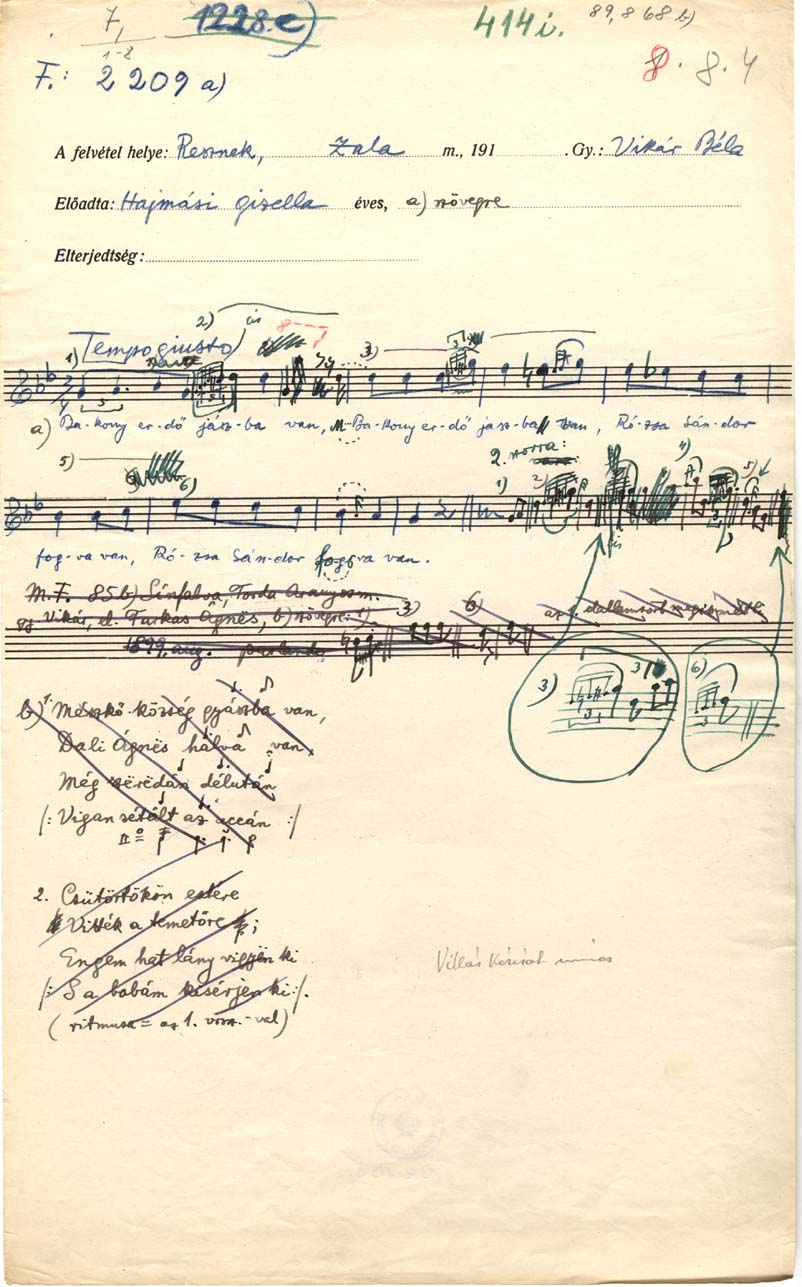 7,
1-8
1228.c)
414i.
89,868 b)
8. 8. 4
F.: 2209 a)
A felvétel helye: Resznek, Zala m., 191 . Gy.: Vikár Béla
Előadta: Hajmási Gizella éves, a) szövegre
Elterjedtség:
2) ás 8
1) Tempo giusto 3)
a) Ba-kony er-dő jász-ba van, Ba-kony er-dő jász-ba van, Ró-zsa Sán-dor
5) 6) 2. sorra: 1) 2) 4) 5)
fog-va van, Ró-zsa Sán-dor fogva van.
M.F. 85b) Sinfalva, Torda Aranyosm.
Vikár, el. Farkas Ágnes, b) szövegre: 1) 3) 6) az 1. dallamsort megismétli
1899. aug. parlando
3) 3 6)
b) 1. Mészkő község gyászba van,
Dali Ágnës halva van,
Még szërëdán délután
/: Vigan sétált az uccán :/
2. Csütörtökön estére
Vitték a temetőre;
Engem hat lány vigyën ki
/: S a babám kisérjen ki :/.
(ritmusa = az 1. vrsz.-val)